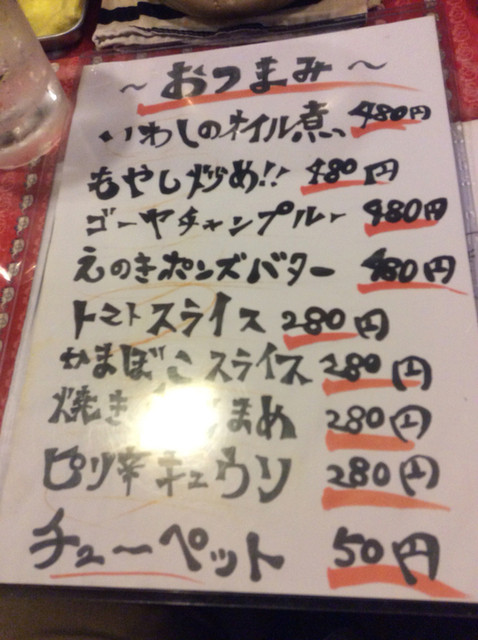 ～おつまみ～
いわしのオイル煮 480円
もやし炒め!! 480円
ゴーヤチャンプルー 480円
えのきポンズバター 480円
トマトスライス 280円
かまぼこスライス 280円
焼き まめ 280円
ピリ辛キュウリ 280円
チューペット 50円